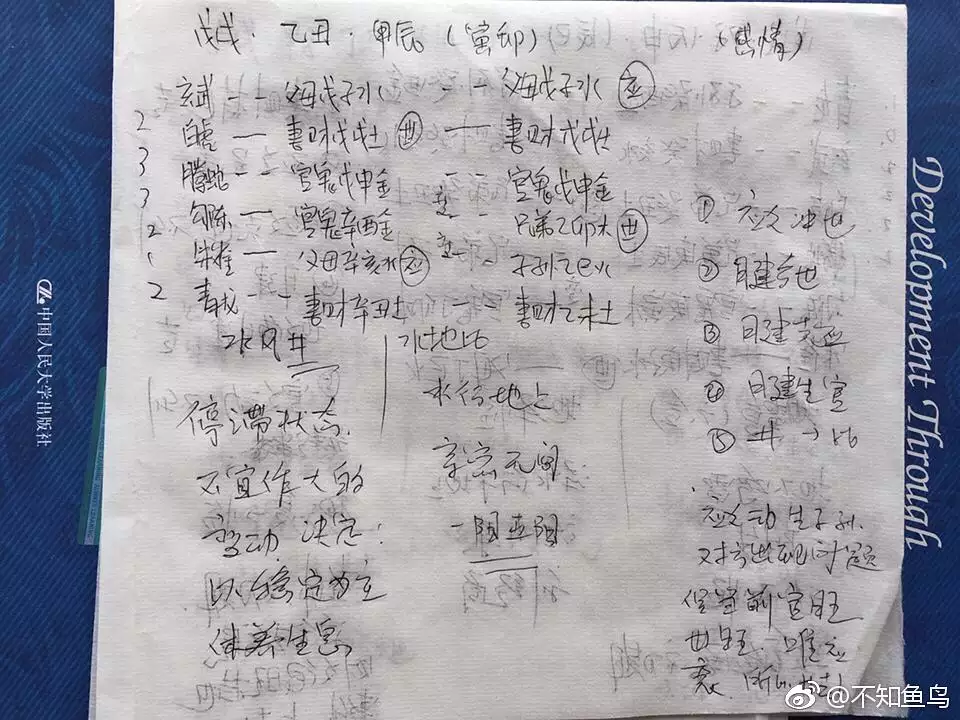 戊戌·乙丑·甲辰(寅卯) (感情)
玄武 -- 父母戊子水 -- 父母戊子水 应
2 白虎 — 妻财戊戌土 世 — 妻财戊戌土
3 腾蛇 -- 官鬼戊申金 -- 官鬼戊申金
3 勾陈 — 官鬼辛酉金 -- 兄弟乙卯木 世
2 朱雀 — 父母辛亥水 应 -- 子孙乙巳火
2 青龙 -- 妻财辛丑土 妻财乙未土
水风井 水地比
停滞状态.
不宜作大的
变动 决定:
以稳定为主
休养生息
水行地上
亲密无间
① 应爻冲世
② 日建合世
③ 月建克应
④ 日建生官
⑤ 井→比
应爻动生子孙.
官旺
世旺. 唯应
衰.
中国人民大学出版社
Development Through
@不知鱼鸟